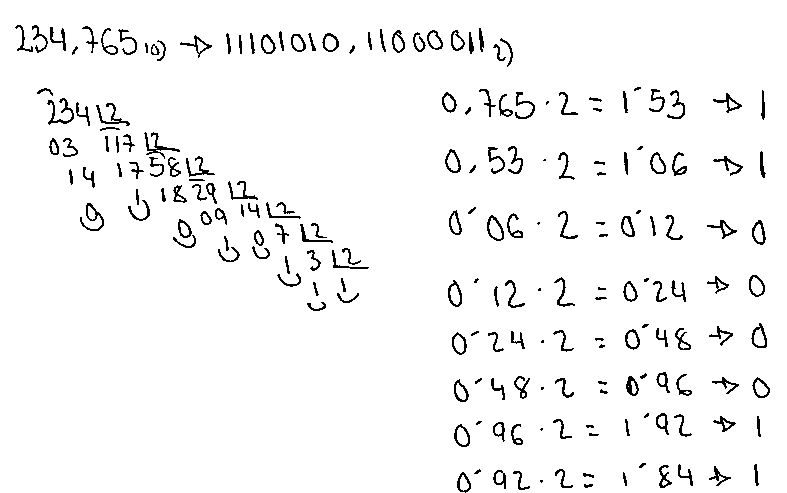 234,765 10) → 11101010,11000011 2)
234 | 2
03 117 | 2
14 17 58 | 2
0 1 18 29 | 2
0 09 14 | 2
1 0 7 | 2
1 3 | 2
1 1
0,765 · 2 = 1'53 → 1
0,53 · 2 = 1'06 → 1
0'06 · 2 = 0'12 → 0
0'12 · 2 = 0'24 → 0
0'24 · 2 = 0'48 → 0
0'48 · 2 = 0'96 → 0
0'96 · 2 = 1'92 → 1
0'92 · 2 = 1'84 → 1